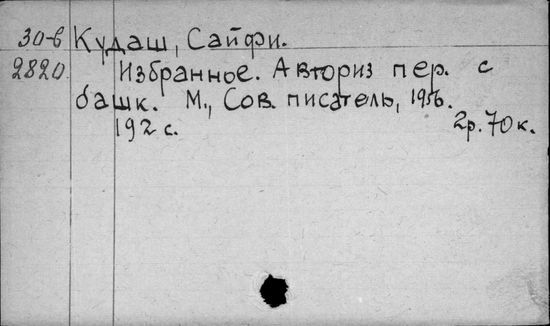 30-6 Кудаш, Сайфи.
2820 Избранное. Авториз пер. с
башк. М., Сов. писатель, 1956.
192 с. 2р. 70 к.